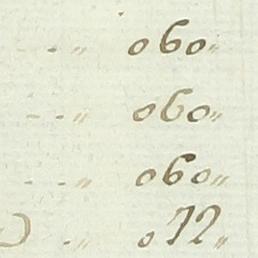 - - " 060"
- - " 060"
- - " 060"
- " 072"